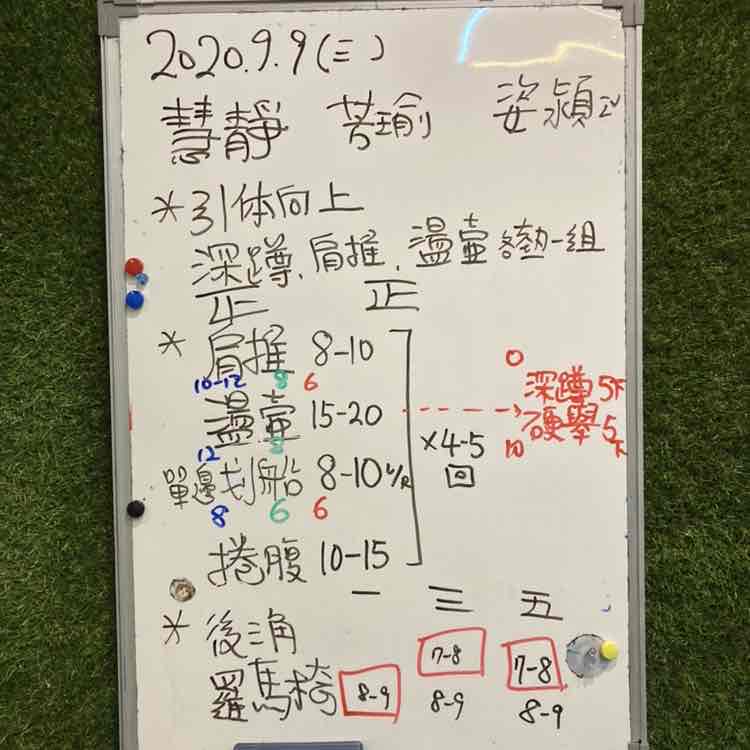 2020.9.9(三)
慧靜 芳瑜 姿潁
*引体向上
深蹲、肩推、溫壺各熱一組
正 正
* 肩推 8-10
10-12 8 6
溫壺 15-20
12 8
單邊划船 8-10 L/R
8 6 6
捲腹 10-15
×4-5
回
0
深蹲5下
硬舉5下
10
一 三 五
* 後三角
7-8 7-8
羅馬椅 8-9 8-9 8-9